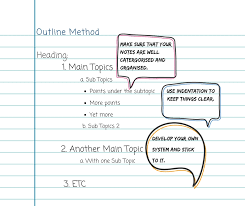 Outline Method
Heading:
1. Main Topics
a. Sub Topics
• Points under the subtopic
• More points
• Yet more
b. Sub Topics 2
2. Another Main Topic
a. With one Sub Topic
3. ETC
MAKE SURE THAT YOUR
NOTES ARE WELL
CATERGORISED AND
ORGANISED.
USE INDENTATION TO
KEEP THINGS CLEAR.
DEVELOP YOUR OWN
SYSTEM AND STICK
TO IT.